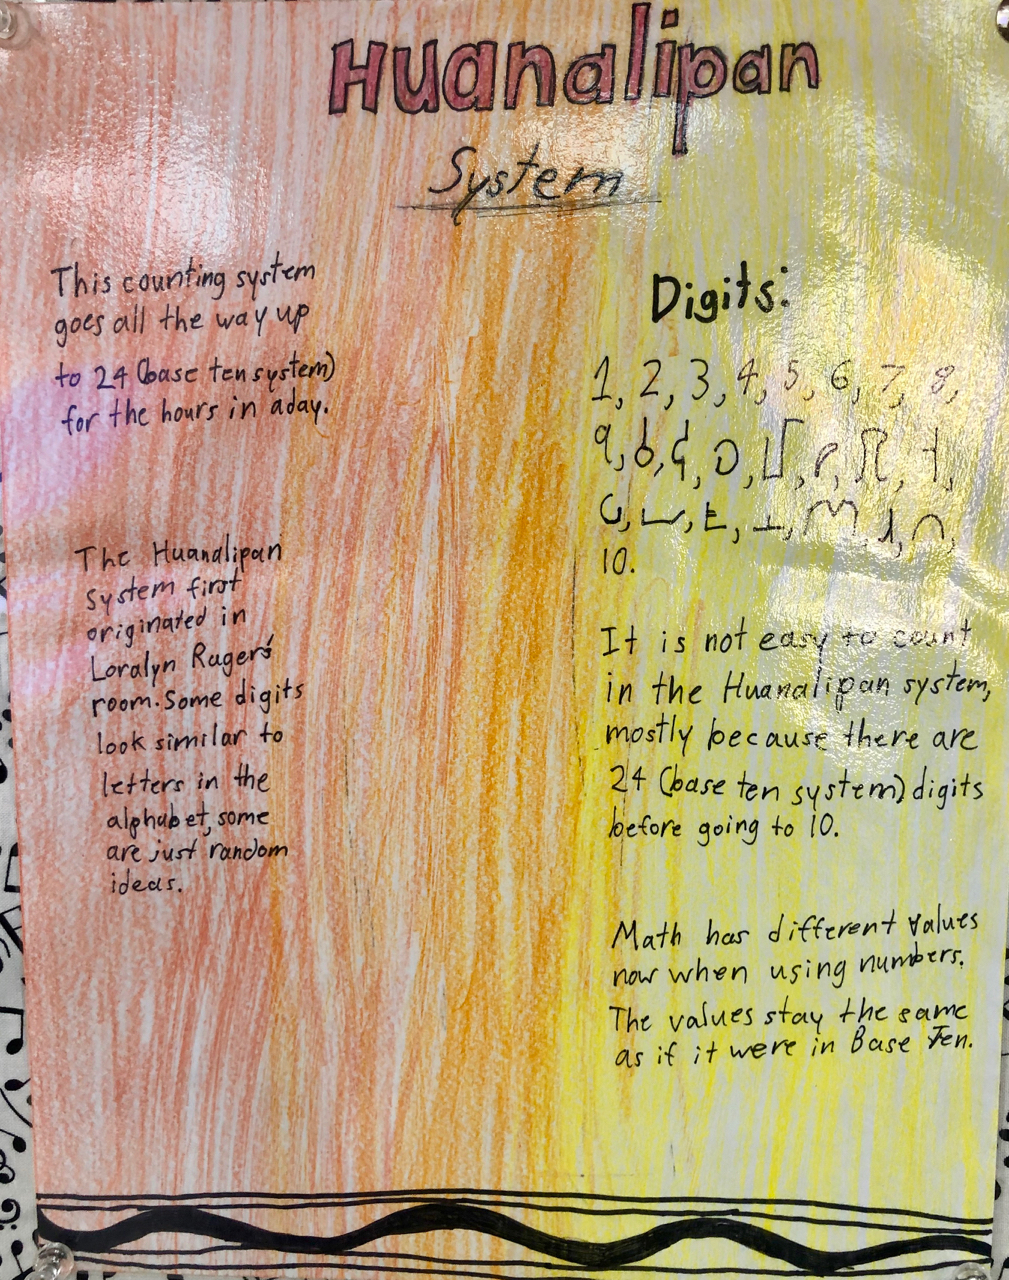 Huanalipan
System
This counting system
goes all the way up
to 24 (base ten system)
for the hours in a day.
The Huanalipan
System first
originated in
Loralyn Rugers'
room. Some digits
look similar to
letters in the
alphabet, some
are just random
ideas.
Digits:
1, 2, 3, 4, 5, 6, 7, 8,
9,
10.
It is not easy to count
in the Huanalipan system,
mostly because there are
24 (base ten system) digits
before going to 10.
Math has different values
now when using numbers.
The values stay the same
as if it were in Base Ten.